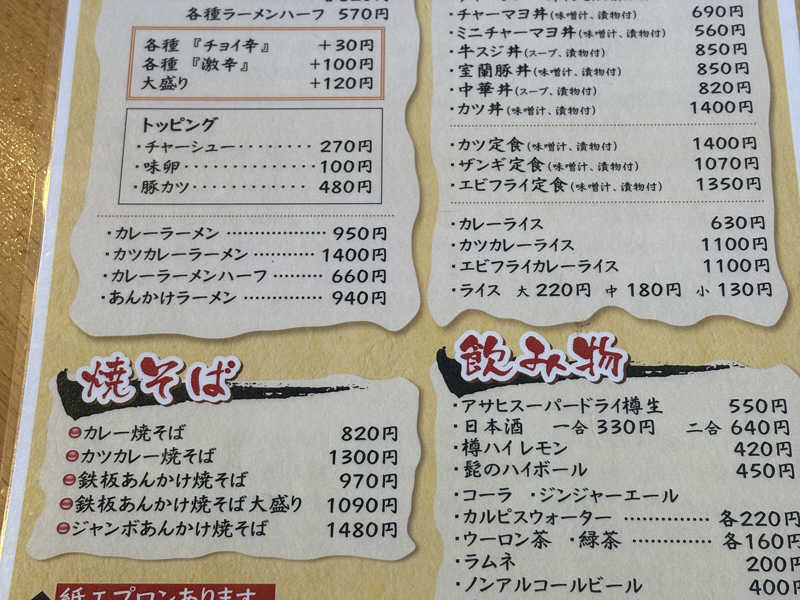 各種ラーメンハーフ 570円
各種『チョイ辛』 +30円
各種『激辛』 +100円
大盛り +120円
トッピング
・チャーシュー・・・・・・・・270円
・味卵・・・・・・・・・・・・・100円
・豚カツ・・・・・・・・・・・480円
・カレーラーメン ………………… 950円
・カツカレーラーメン …………… 1400円
・カレーラーメンハーフ ……… 660円
・あんかけラーメン …………… 940円
焼そば
カレー焼そば 820円
カツカレー焼そば 1300円
鉄板あんかけ焼そば 970円
鉄板あんかけ焼そば大盛り 1090円
ジャンボあんかけ焼そば 1480円
紙エプロンあります
・チャーマヨ丼(味噌汁、漬物付) 690円
・ミニチャーマヨ丼(味噌汁、漬物付) 560円
・牛スジ丼(スープ、漬物付) 850円
・室蘭豚丼(味噌汁、漬物付) 850円
・中華丼(スープ、漬物付) 820円
・カツ丼(味噌汁、漬物付) 1400円
・カツ定食(味噌汁、漬物付) 1400円
・ザンギ定食(味噌汁、漬物付) 1070円
・エビフライ定食(味噌汁、漬物付) 1350円
・カレーライス 630円
・カツカレーライス 1100円
・エビフライカレーライス 1100円
・ライス 大 220円 中 180円 小 130円
飲み物
・アサヒスーパードライ樽生 550円
・日本酒 一合 330円 二合 640円
・樽ハイレモン 420円
・髭のハイボール 450円
・コーラ ・ジンジャーエール
・カルピスウォーター …………… 各220円
・ウーロン茶 ・緑茶 …………… 各160円
・ラムネ 200円
・ノンアルコールビール 400円